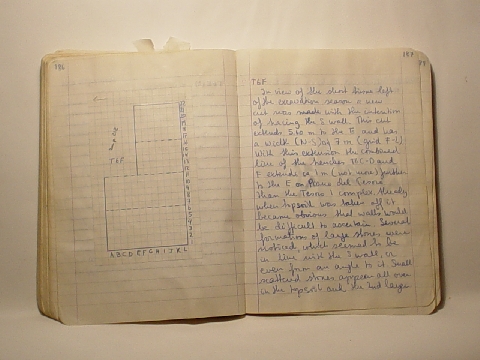 186
T6F
A B C D E F G H I J K L
187
T6F
In view of the short time left
of the excavation season a new
cut was made with the intention
of tracing the S wall. This cut
extends 5.60 m to the E and has
a width (N-S) of 7 m (grid F-L)
With this extension the combined
line of the trenches T6C-D and
F extends ca 1 m (not more) further
to the E on Piano del Tesoro
than the Tesoro 1 complex. Already
when topsoil was taken off it
became obvious that walls would
be difficult to ascertain. Several
formations of large stones were
noticed, which seemed to be
in line with the S wall, or
even form an angle to it. Small
scattered stones appear all over
in the topsoil and the 2nd layer